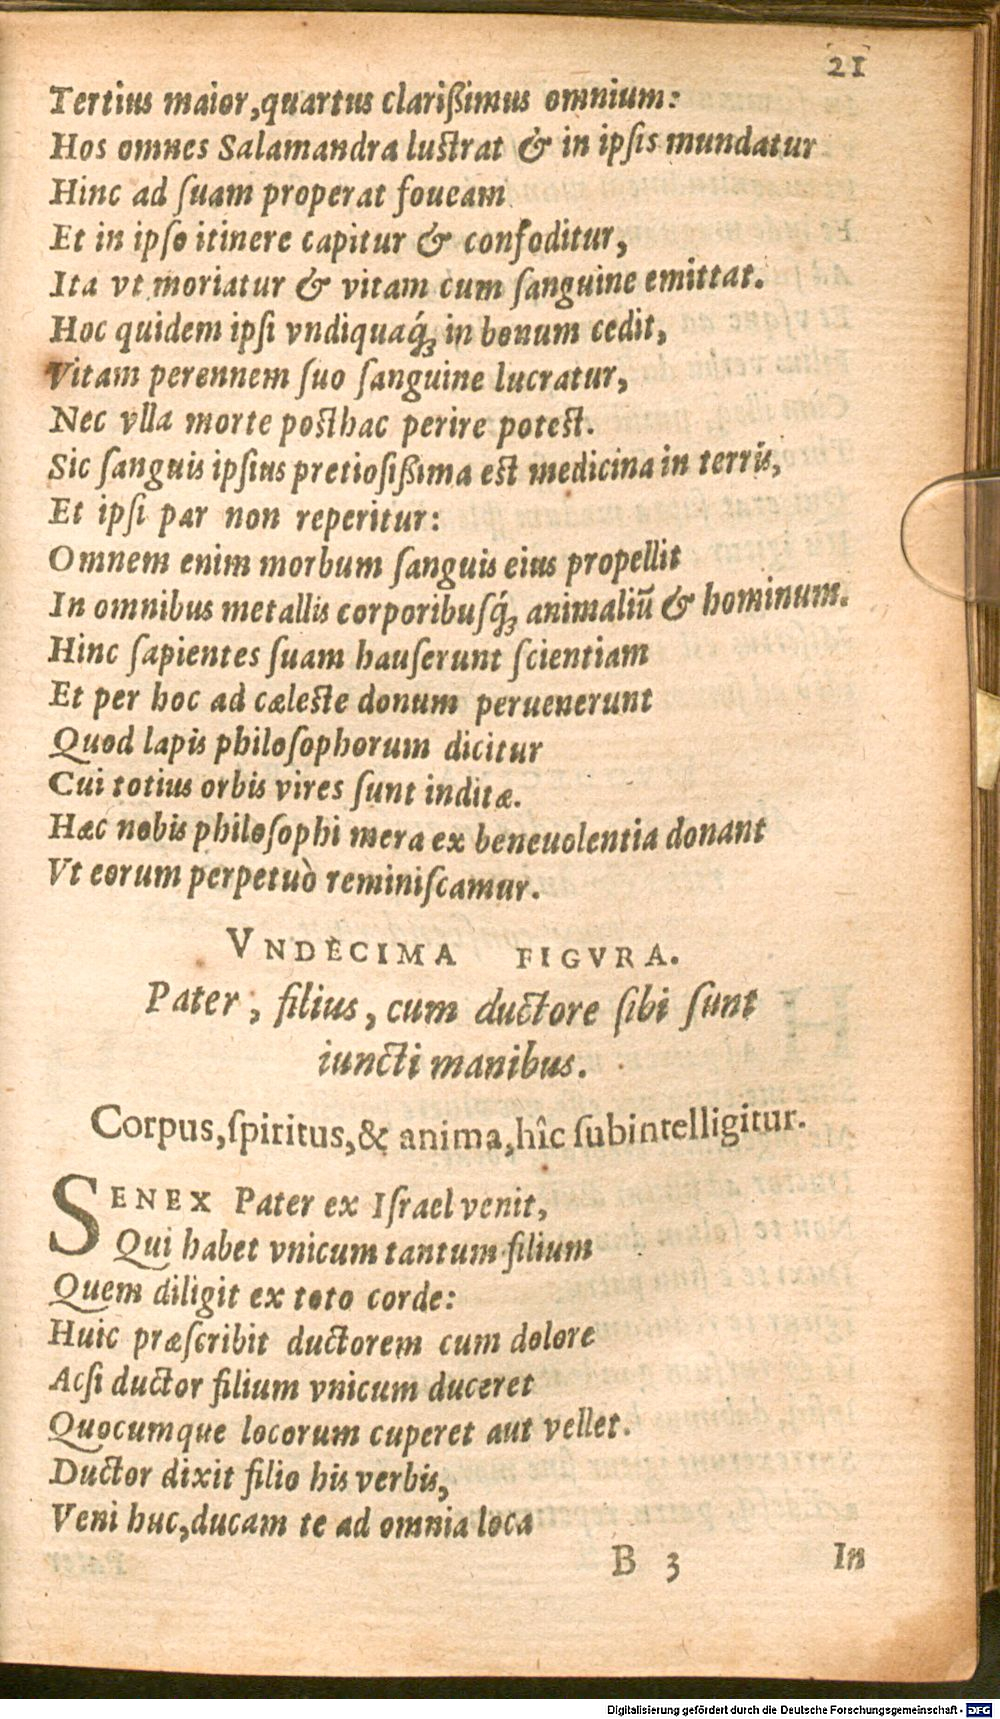 21
Tertius maior,quartus clarißimus omnium:
Hos omnes Salamandra luſtrat & in ipſis mundatur
Hinc ad ſuam properat foueam
Et in ipſo itinere capitur & confoditur,
Ita vt moriatur & vitam cum ſanguine emittat.
Hoc quidem ipſi vndiquaq́ꝫ in bonum cedit,
Vitam perennem ſuo ſanguine lucratur,
Nec vlla morte poſthac perire poteſt.
Sic ſanguis ipſius pretioſißima eſt medicina in terris,
Et ipſi par non reperitur:
Omnem enim morbum ſanguis eius propellit
In omnibus metallis corporibuſq́ꝫ animaliũ & hominum.
Hinc ſapientes ſuam hauſerunt ſcientiam
Et per hoc ad cæleſte donum peruenerunt
Quod lapis philoſophorum dicitur
Cui totius orbis vires ſunt inditæ.
Hæc nobis philoſophi mera ex beneuolentia donant
Vt eorum perpetuò reminiſcamur.
VNDECIMA FIGVRA.
Pater, filius, cum ductore ſibi ſunt
iuncti manibus.
Corpus,ſpiritus,& anima,hîc ſubintelligitur.
SENEX Pater ex Iſrael venit,
Qui habet vnicum tantum filium
Quem diligit ex toto corde:
Huic præſcribit ductorem cum dolore
Acſi ductor filium vnicum duceret
Quocumque locorum cuperet aut vellet.
Ductor dixit filio his verbis,
Veni huc,ducam te ad omnia loca
B 3 In
Digitalisierung gefördert durch die Deutsche Forschungsgemeinschaft - DFG